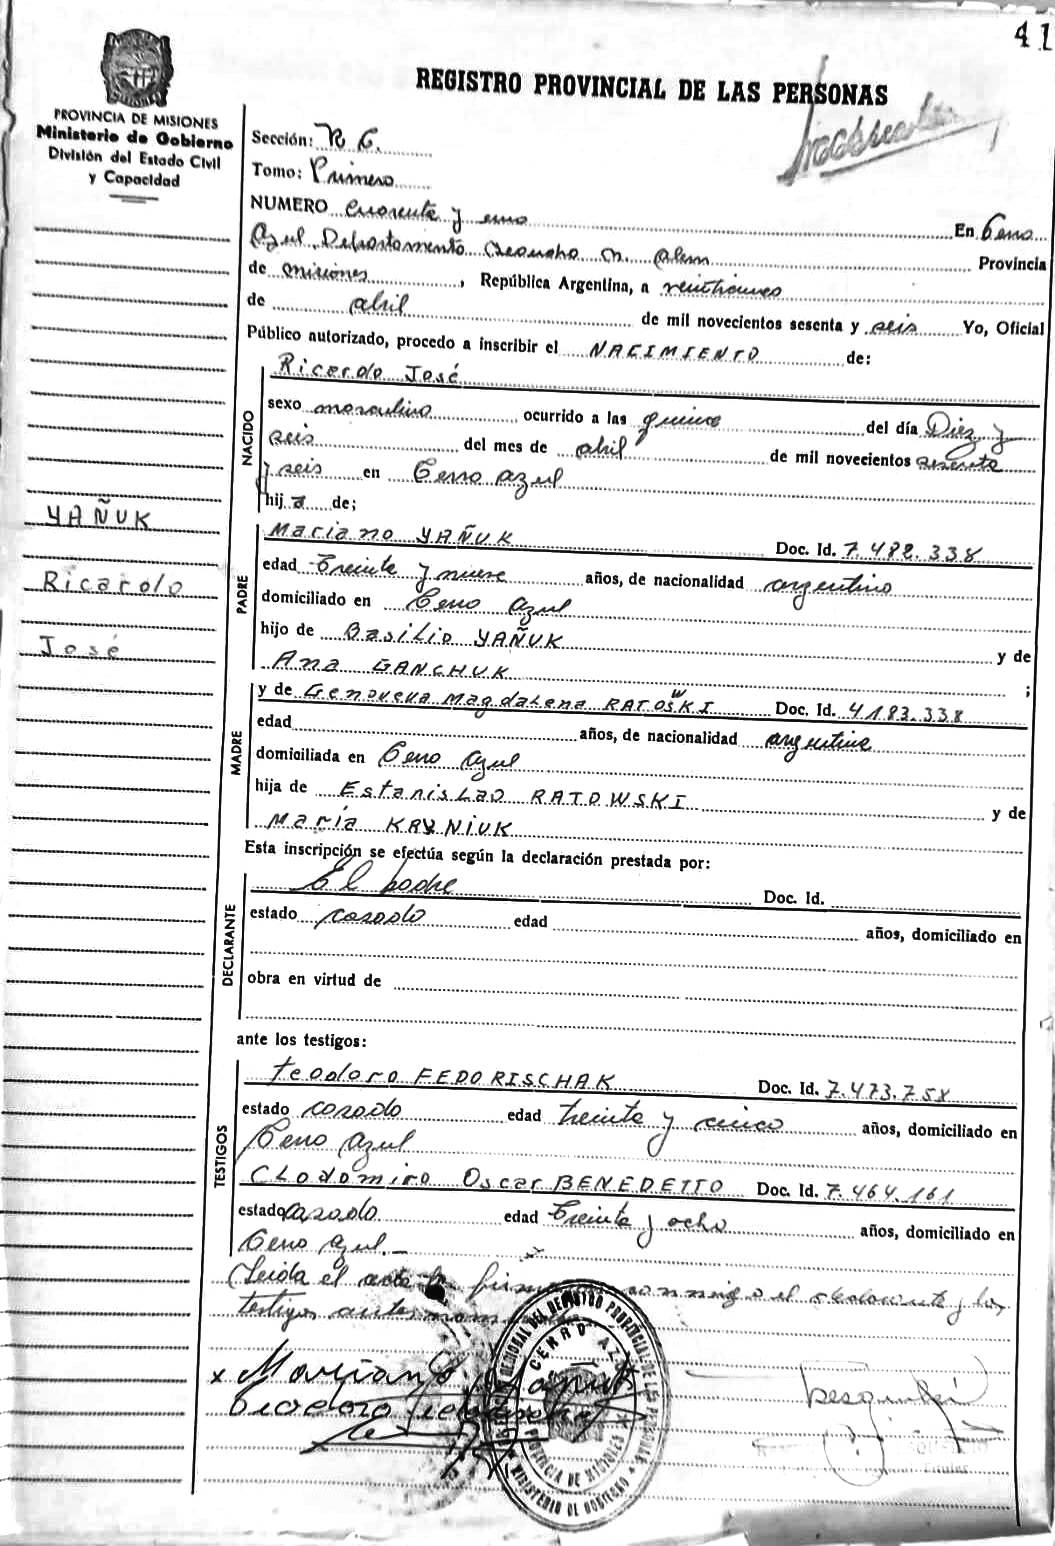 41
REGISTRO PROVINCIAL DE LAS PERSONAS
PROVINCIA DE MISIONES
Ministerio de Gobierno
División del Estado Civil
y Capacidad
Sección:
Tomo: Primero
NUMERO cuarenta y uno En Cerro
Azul Departamento Leandro N. Alem Provincia
de Misiones, República Argentina, a veintinueve
de abril de mil novecientos sesenta y seis Yo, Oficial
Público autorizado, procedo a inscribir el NACIMIENTO de:
NACIDO
Ricardo José
sexo masculino ocurrido a las quince del día Diez y
seis del mes de abril de mil novecientos sesenta
y seis en Cerro Azul
hij o de;
YAÑUK
Ricardo
José
PADRE
Mariano YAÑUK Doc. Id. 7.482.338
edad treinta y nueve años, de nacionalidad argentino
domiciliado en Cerro Azul
hijo de Basilio YAÑUK y de
Ana GANCHUK ;
MADRE
y de Genoveva Magdalena RATOWSKI Doc. Id. 4183.338
edad años, de nacionalidad argentina
domiciliada en Cerro Azul
hija de Estanislao RATOWSKI y de
María KRYNIUK
Esta inscripción se efectúa según la declaración prestada por:
DECLARANTE
El padre Doc. Id.
estado casado edad años, domiciliado en
obra en virtud de
ante los testigos:
TESTIGOS
Teodoro FEDORISCHAK Doc. Id. 7.473.758
estado casado edad treinta y cinco años, domiciliado en
Cerro Azul
CLodomiro Oscar BENEDETTO Doc. Id. 7.464.161
estado casado edad treinta y ocho años, domiciliado en
Cerro Azul.-
Leida el acta la firman conmigo el declarante y los
testigos
x Mariano Yañuk
Teodoro
CERRO AZUL
PROVINCIA DE MISIONES
MINISTERIO DE GOBIERNO